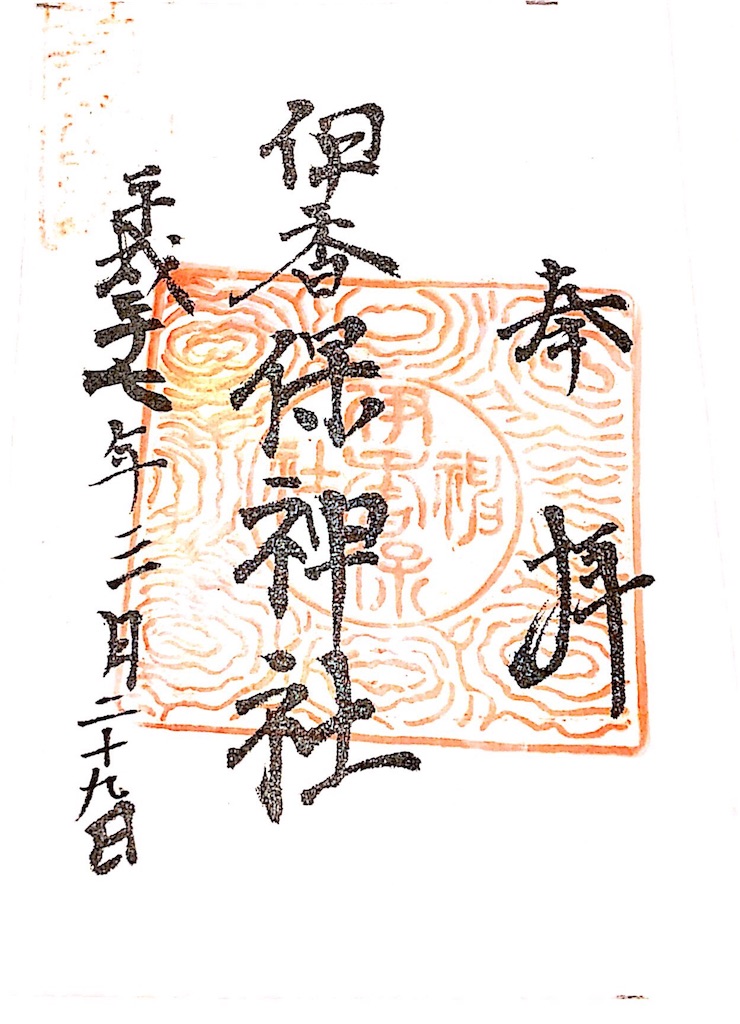 奉拝
伊香保神社
平成二十七年三月二十九日
伊香保神社